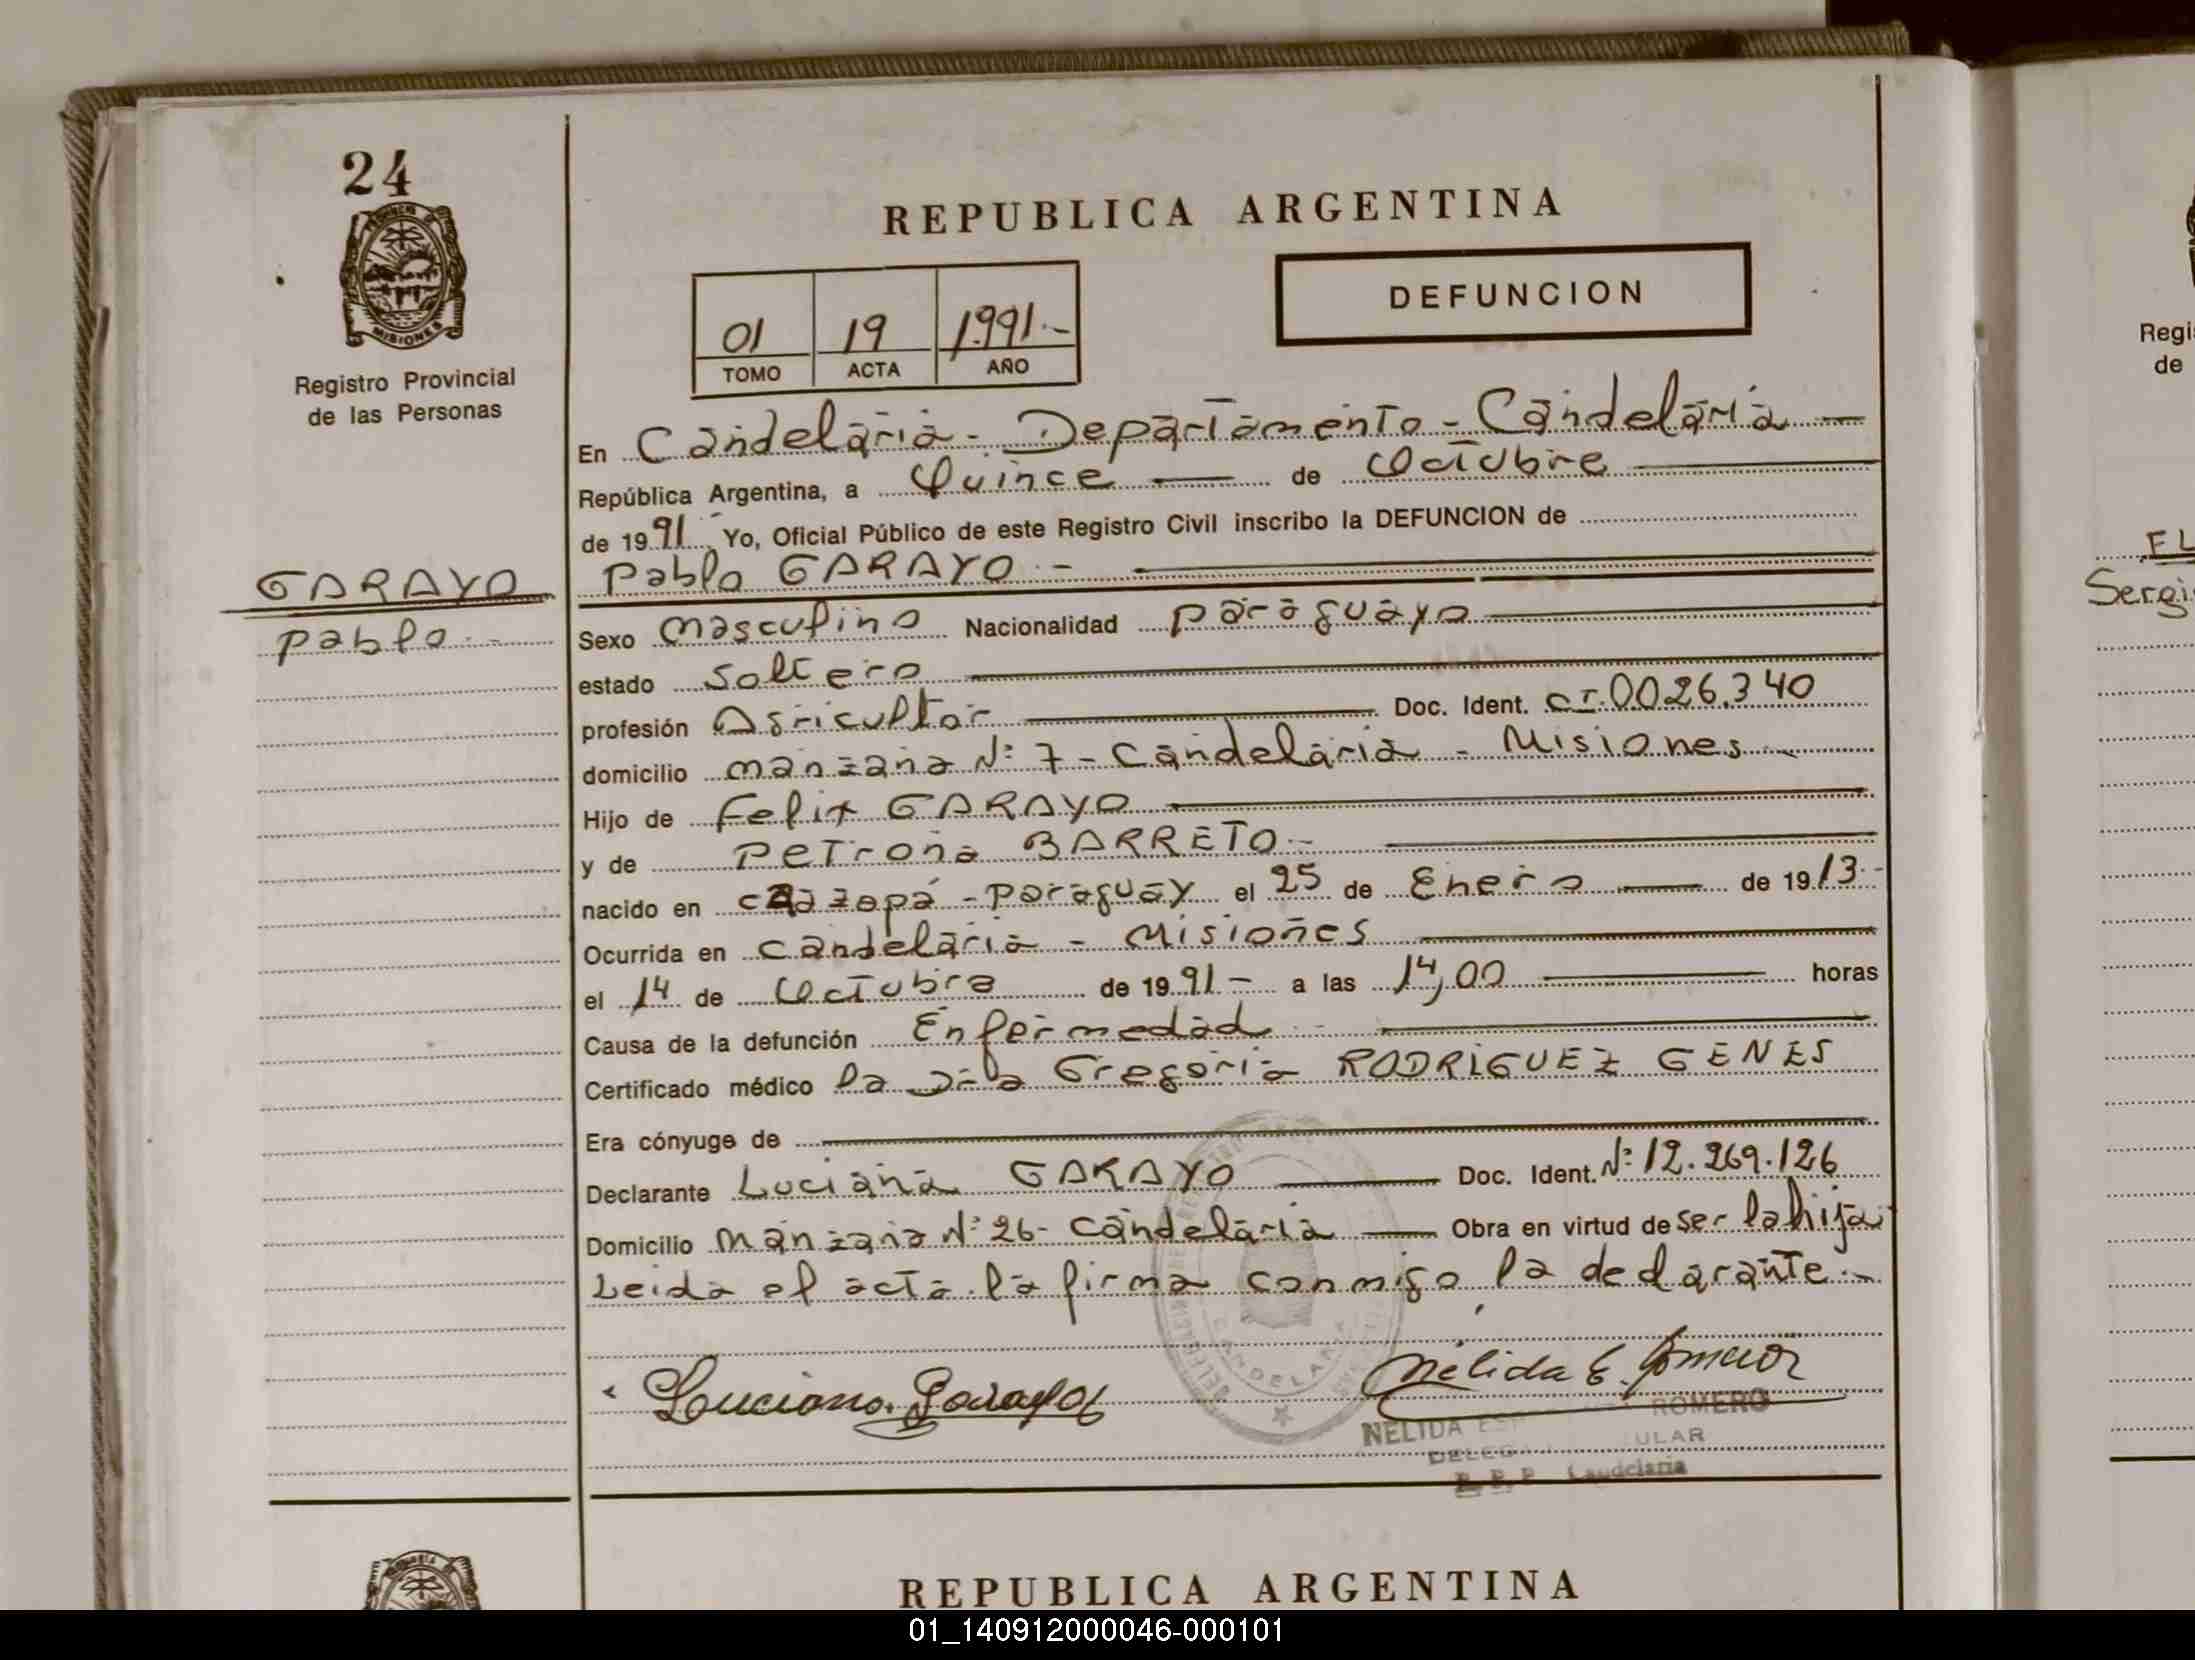 24
PROVINCIA
MISIONES
Registro Provincial
de las Personas
REPUBLICA ARGENTINA
DEFUNCION
01 19 1.991.-
TOMO ACTA AÑO
En Candelaria - Departamento - Candelaria
República Argentina, a Quince de Octubre
de 1991 Yo, Oficial Público de este Registro Civil inscribo la DEFUNCION de
Pablo GARAYO.-
GARAYO
Pablo.-
Sexo masculino Nacionalidad paraguaya
estado soltero
profesión Agricultor Doc. Ident. CI.0026.340
domicilio manzana Nº 7 - Candelaria - Misiones
Hijo de Felix GARAYO
y de Petrona BARRETO.-
nacido en caazapá - paraguay el 25 de Enero de 1913.-
Ocurrida en candelaria - Misiones
el 14 de Octubre de 1991 - a las 14,00 horas
Causa de la defunción Enfermedad
Certificado médico la Dra Gregoria RODRIGUEZ GENES
Era cónyuge de
Declarante Luciana GARAYO Doc. Ident. Nº 12.269.126
Domicilio manzana Nº 26 - candelaria Obra en virtud de ser la hija
Leida el acta la firma conmigo la declarante.-
Luciana Garayo
Nélida E. Romero
CANDELARIA
NELIDA ROMERO
Candelaria
REPUBLICA ARGENTINA
Regi
de
EL
Sergi
01_140912000046-000101